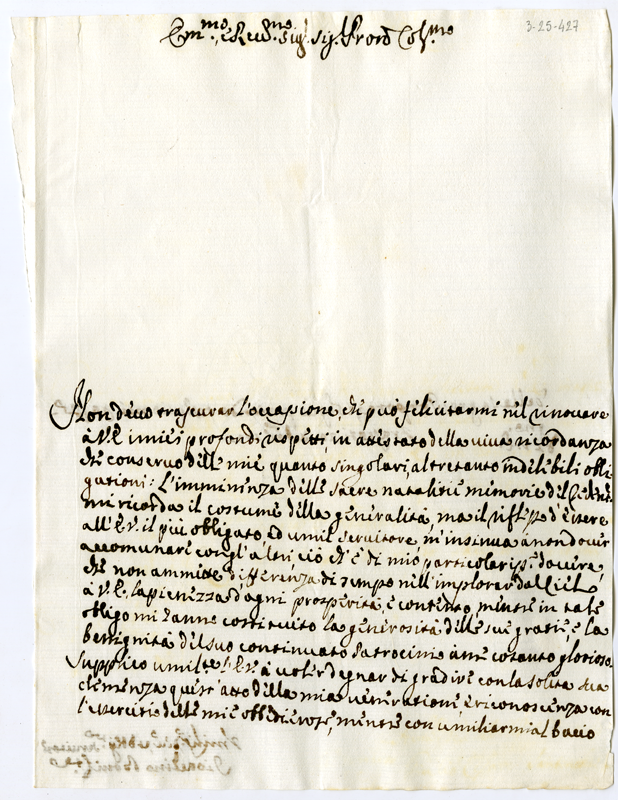 3-25-427
Em.mo, e Rev.mo Sig. Sig. Pron Col.mo
Non devo trascurar l'occasione, che può felicitarmi nel rinovare
à V.E. i miei profondi rispetti, in attestato della viva ricordanza
che conservo delle mie quanto singolari, altretanto indelebili obli
gationi: L'imminenza delle sacre natalitie memorie del
mi ricorda il costume della generalità, ma il d'essere
all'E.V. il più obligato, ed umil servitore, m'insinua à non dover
accomunare con gl'altri ciò ch'è di mio particolariss.o dovere,
che non ammitte differenza di tempo nell'implorar dal Cielo
à V.E. la pienezza d'ogni prosperità, e contento, mentre in tale
obligo mi hanno costituito la generosità delle sue gratie, e la
benignità del suo continuato Patrocinio à me cotanto glorioso
Supplico umilte l'E.V. à voler degnar di gradire con la solita sua
clemenza quest'atto della mia veneratione, e riconoscenza con
l'esercitio delle mie obbedienze, mentre con umiliarmi al bacio